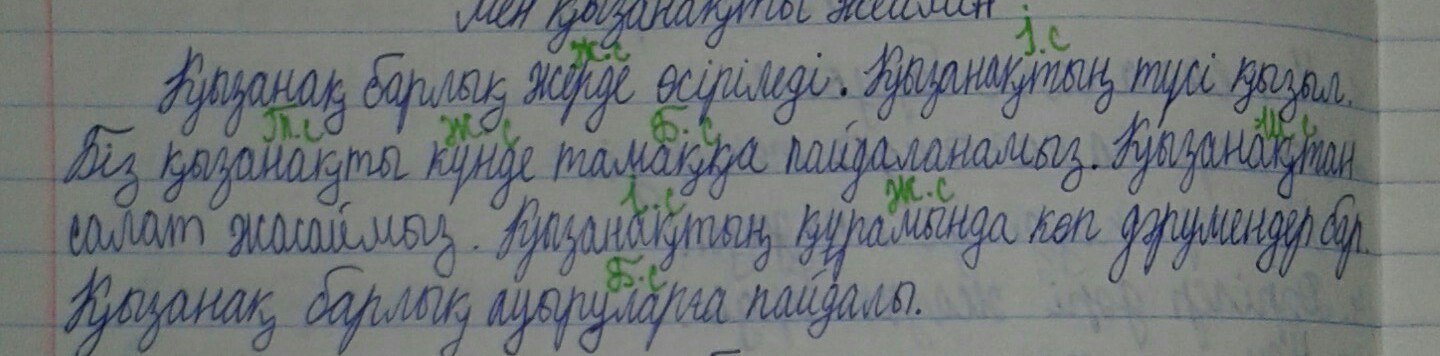 Мен қызанақты жеймін
ж.с І.с
Қызанақ барлық жерде өсіріледі. Қызанақтың түсі қызыл.
Т.с Ж.с Б.с Ш.с
Біз қызанақты күнде тамаққа пайдаланамыз. Қызанақтан
І.с Ж.с
салат жасаймыз. Қызанақтың құрамында көп дәрумендер бар.
Б.с
Қызанақ барлық ауыруларға пайдалы.